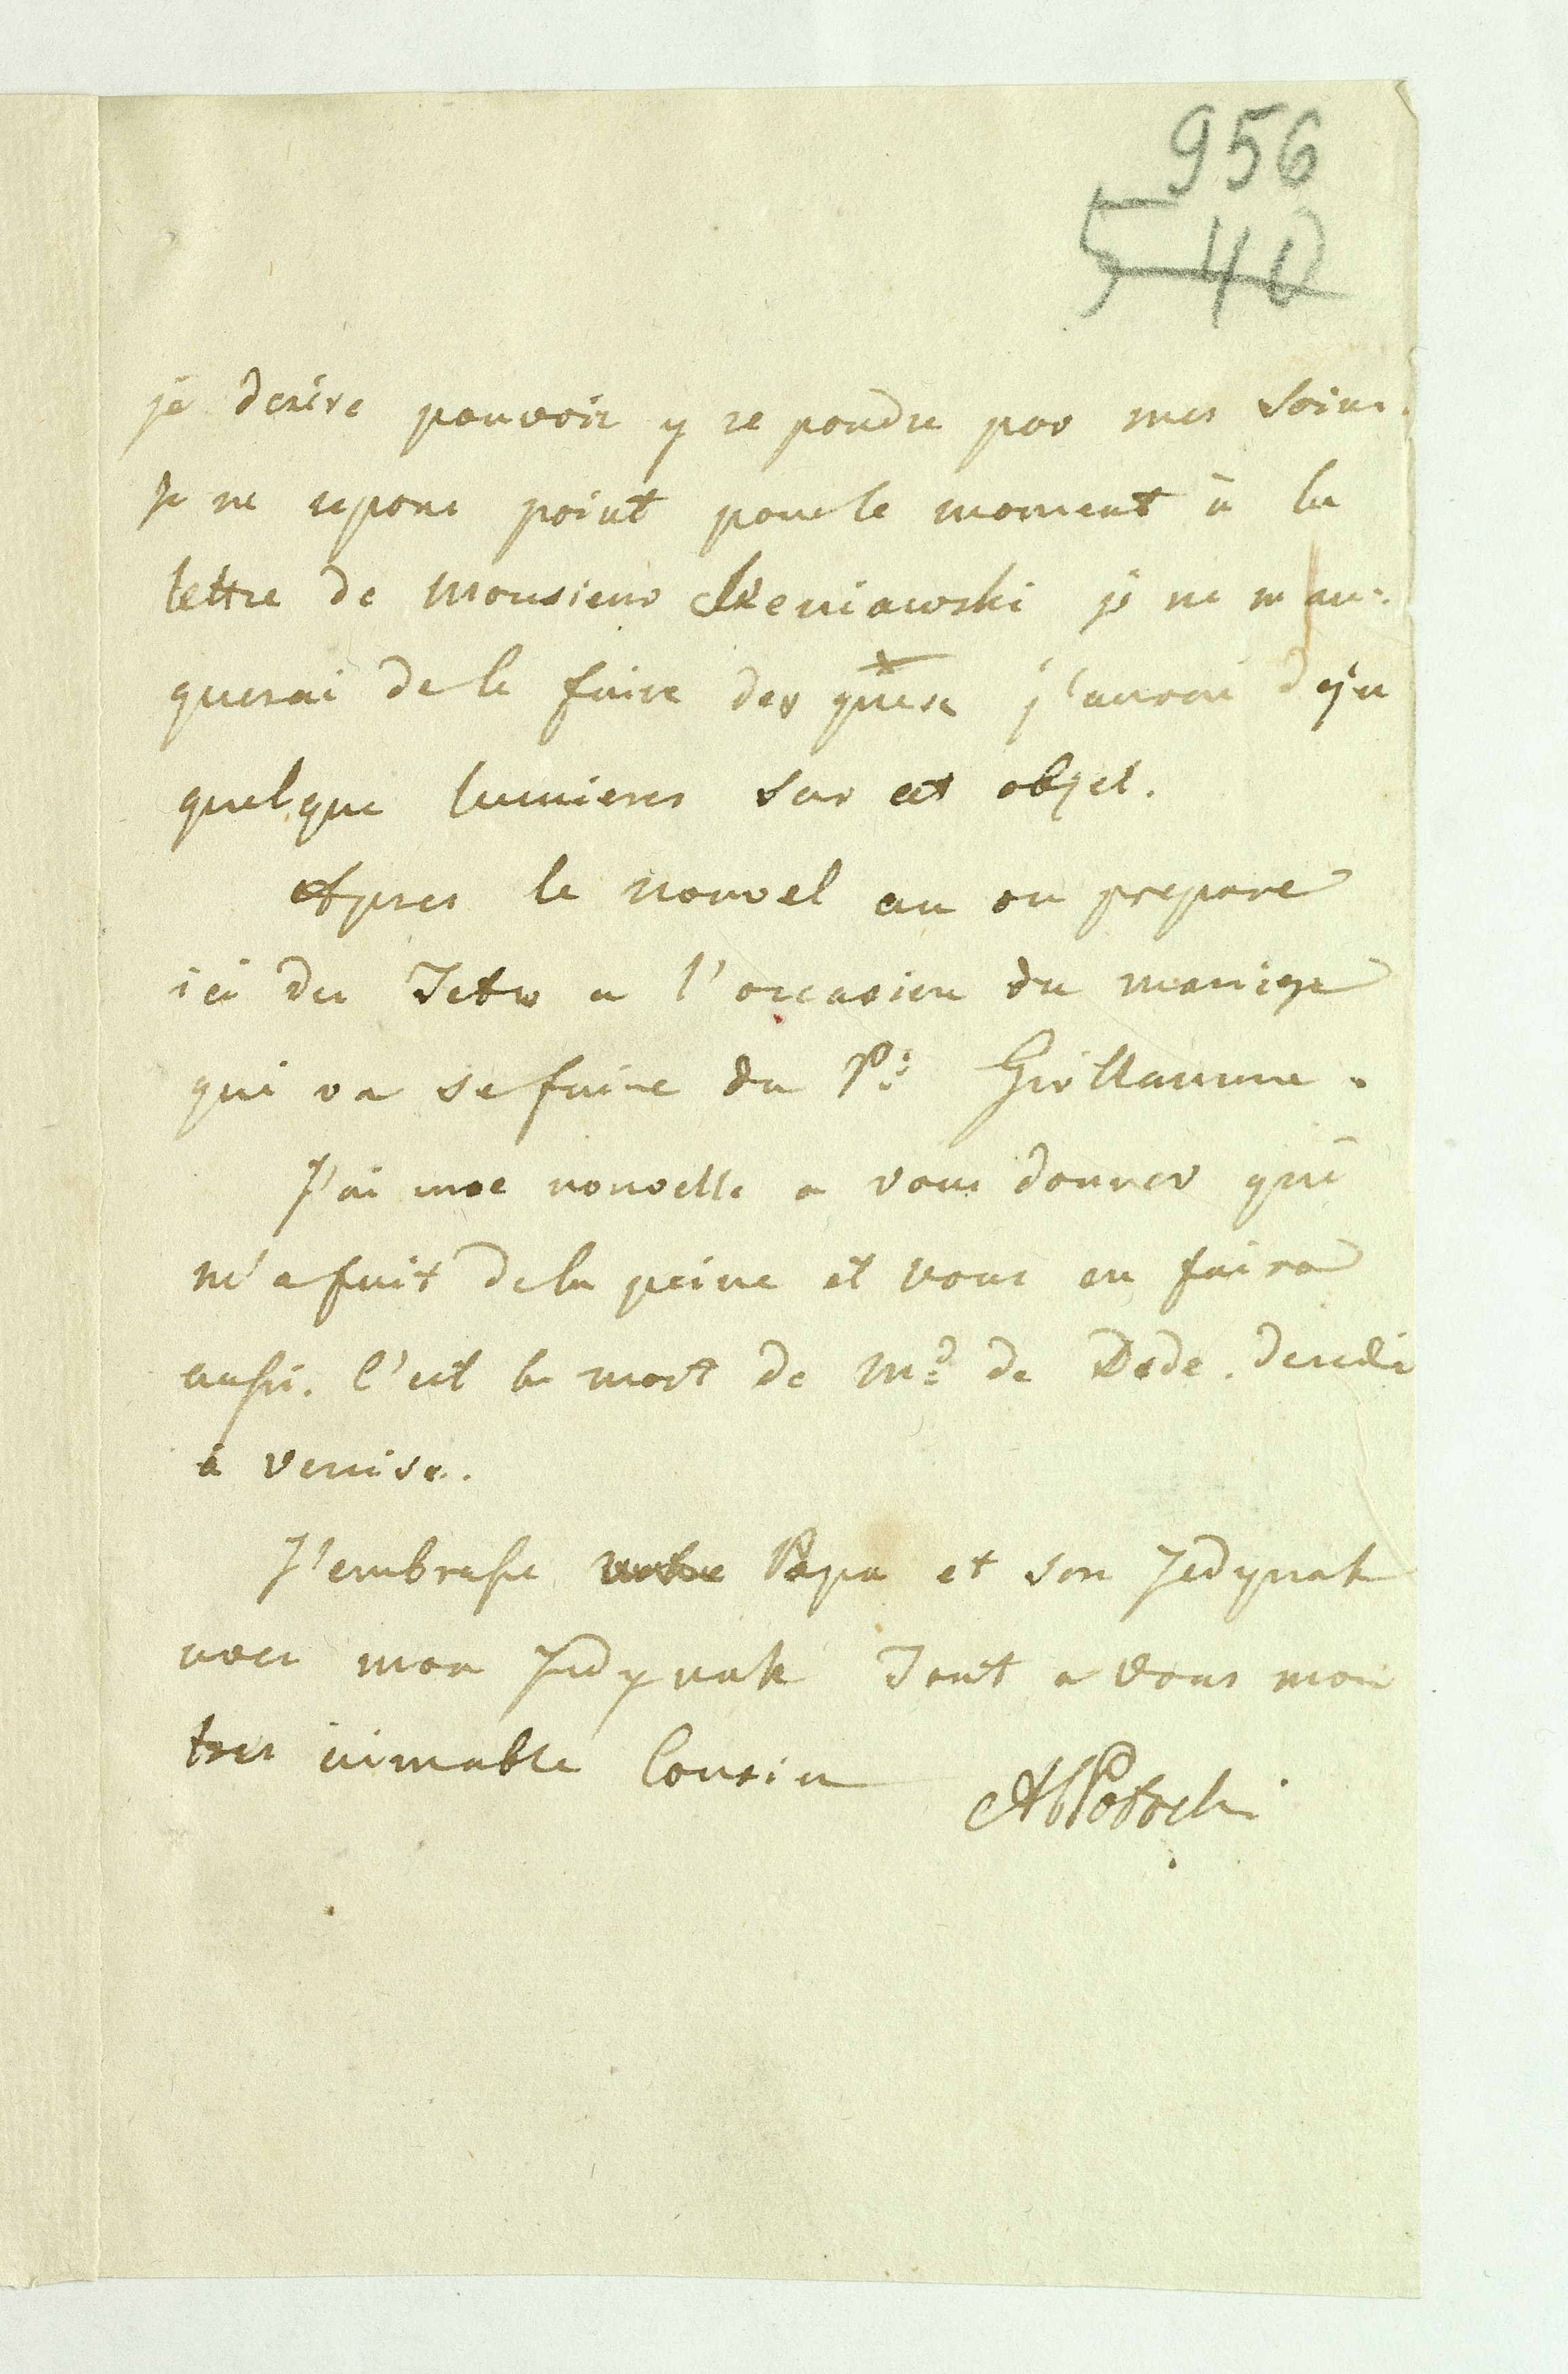 956
540
je desire pouvoir y re pondre par mes soins.
Je ne repons point pour le moment à la
lettre de Monsieur Skeniawski je ne man-
querai de le faire des que j'aurai deja
quelque lumieres sur cet objet.
Apres le nouvel an on prepare
ici des Fetes a l'occasion du mariage
qui va se faire du Pce Guillaume.
J'ai une nouvelle a vous donner qui
m'a fait de la peine et vous en faira
aussi. C'est la mort de Md de Dede.
à Venise.
J'embrasse votre Papa et son Jedynak
avec mon Jedynak Tout a vous mon
tres aimable Cousin
APotocki